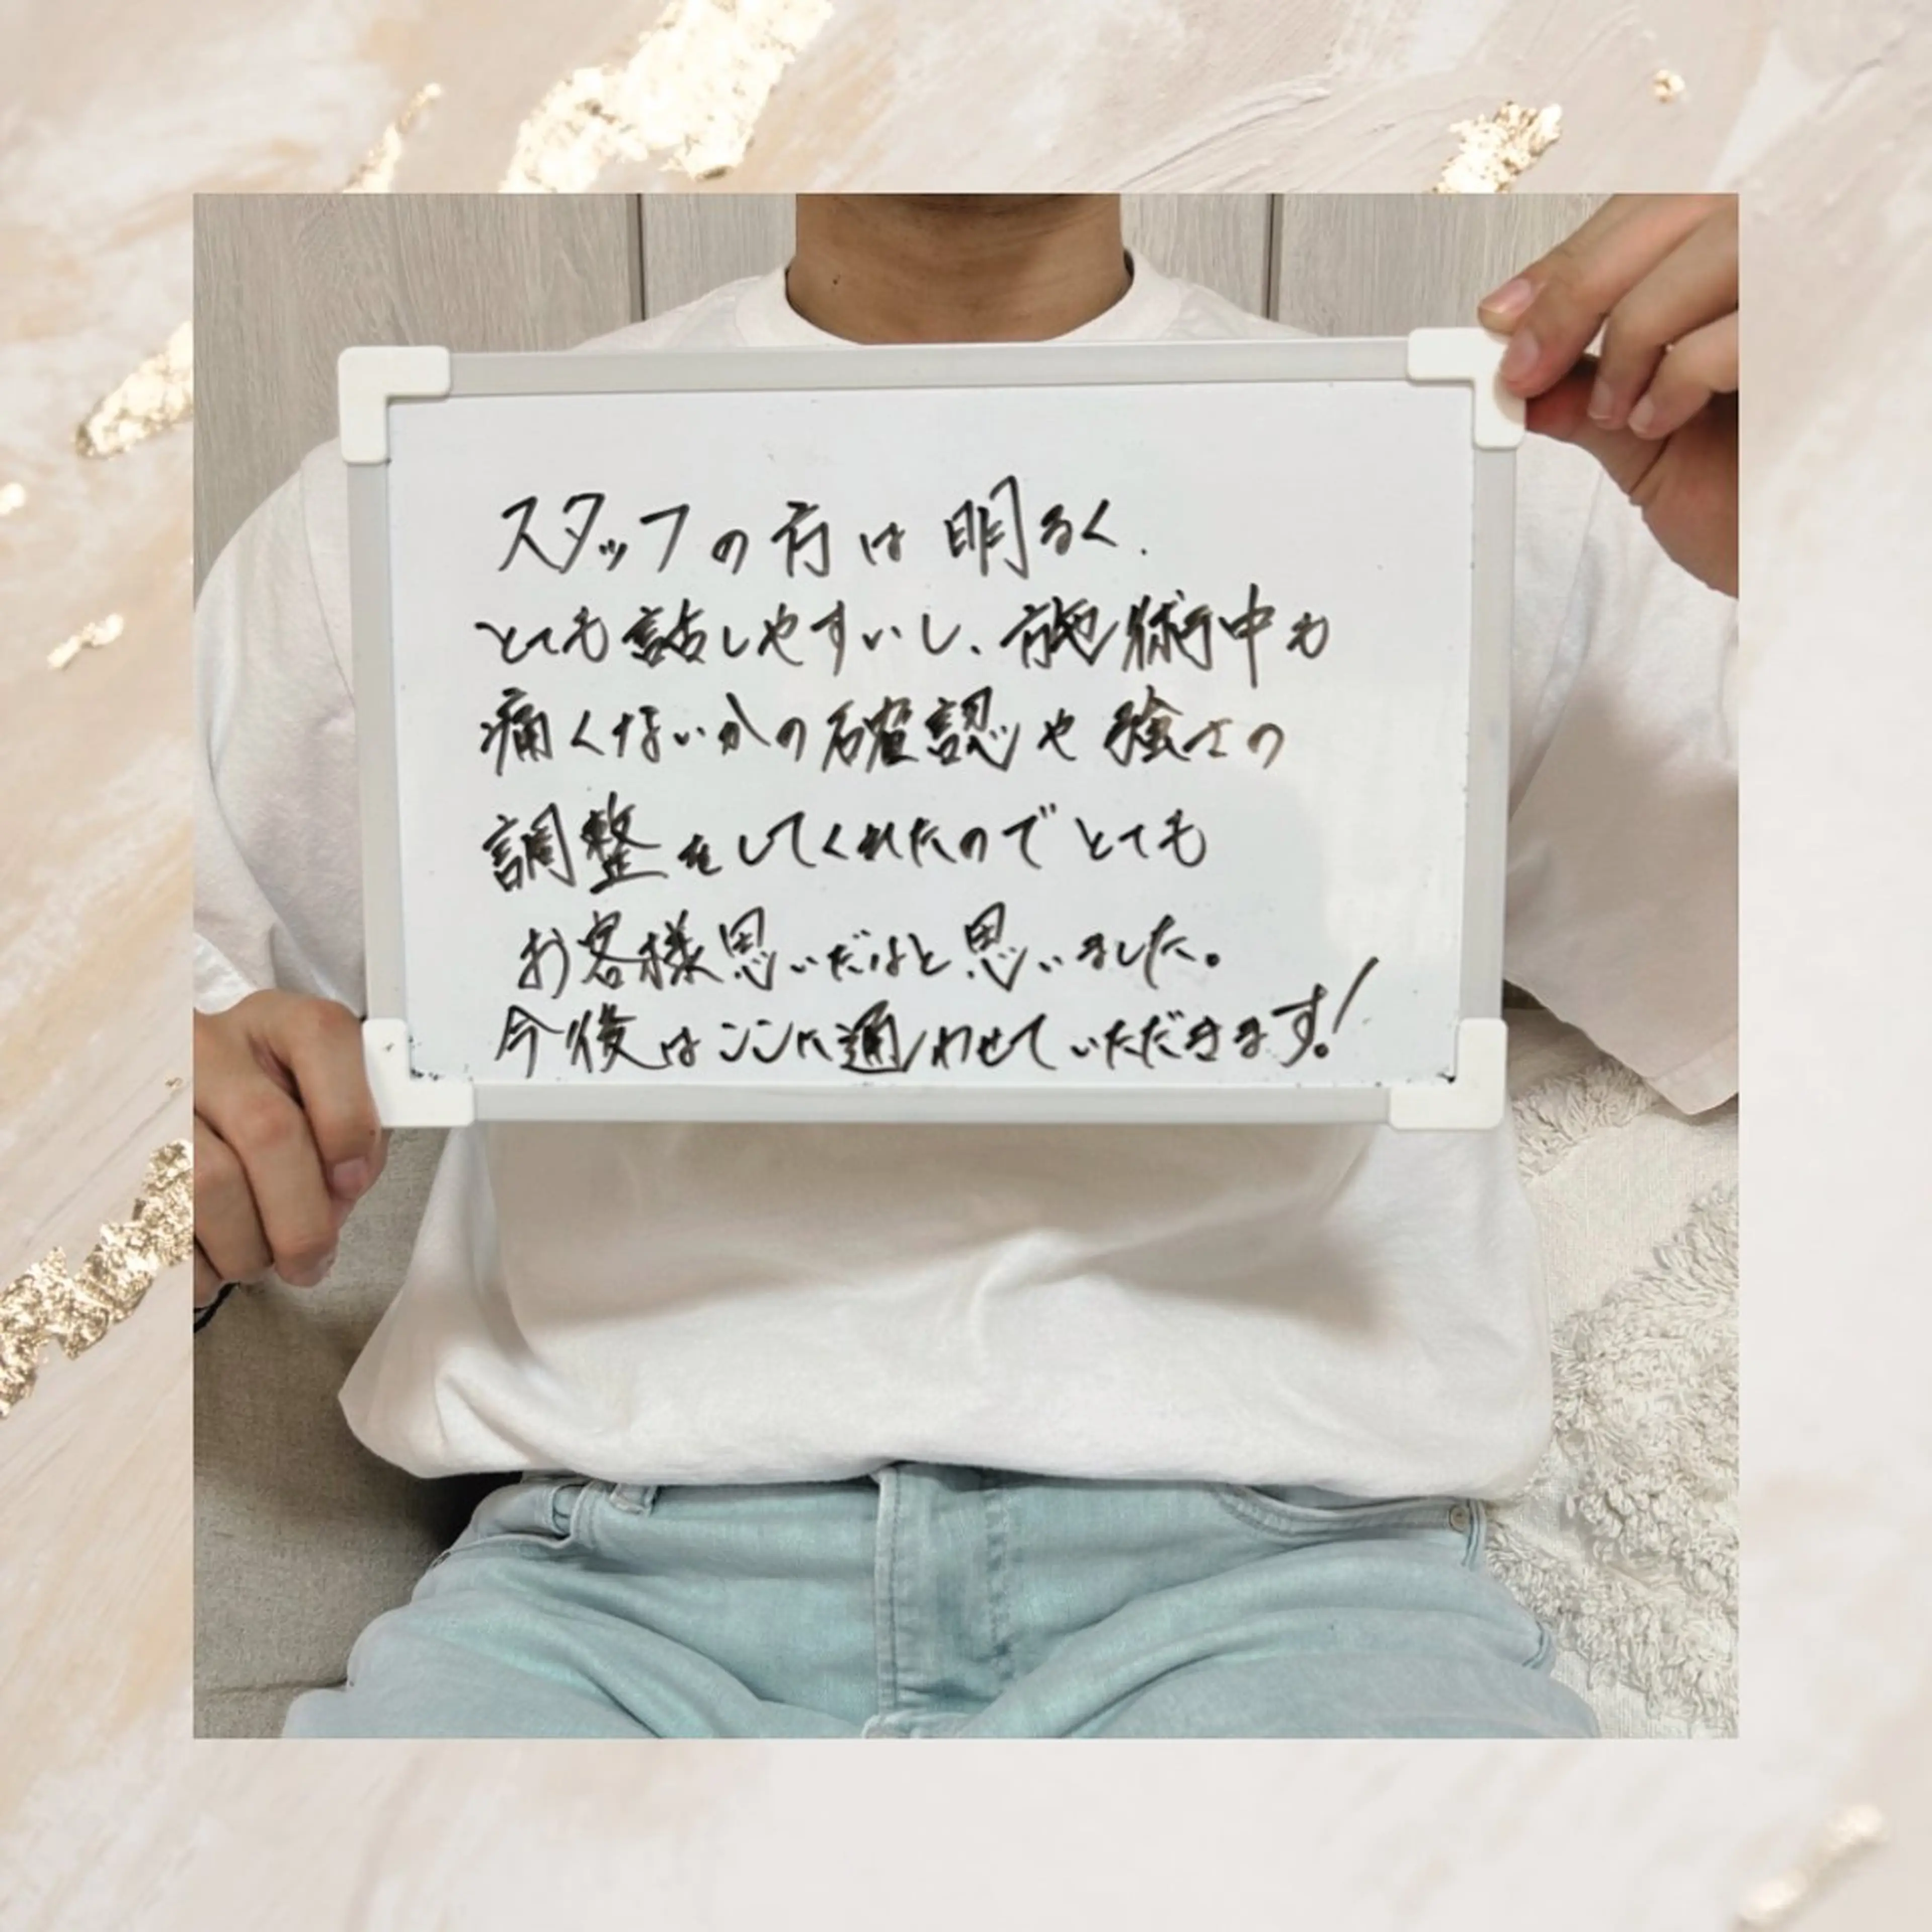 スタッフの方は明るく、
とても話しやすいし、施術中も
痛くないかの確認や強さの
調整をしてくれたのでとても
お客様思いだなと思いました。
今後はここに通わせていただきます！